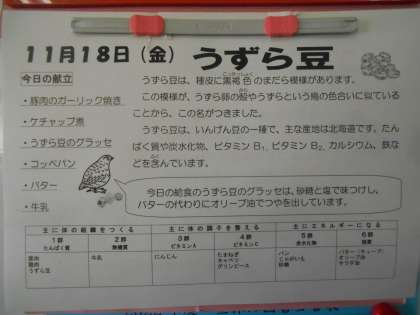 11月18日(金) うずら豆
今日の献立
・豚肉のガーリック焼き
・ケチャップ煮
・うずら豆のグラッセ
・コッペパン
・バター
・牛乳
うずら豆は、種皮に黒褐色のまだら模様があります。
この模様が、うずら卵の殻やうずらという鳥の色合いに似ている
ことから、この名がつきました。
うずら豆は、いんげん豆の一種で、主な産地は北海道です。たん
ぱく質や炭水化物、ビタミンB₁、ビタミンB₂、カルシウム、鉄な
どを含んでいます。
今日の給食のうずら豆のグラッセは、砂糖と塩で味つけし、
バターの代わりにオリーブ油でつやを出しています。
主に体の組織をつくる 主に体の調子を整える 主にエネルギーになる
1群 2群 3群 4群 5群 6群
たんぱく質 無機質 ビタミンA ビタミンC 炭水化物 脂質
豚肉 牛乳 にんじん たまねぎ パン バター(キューブ)
鶏肉 キャベツ じゃがいも オリーブ油
うずら豆 グリンピース 砂糖 サラダ油